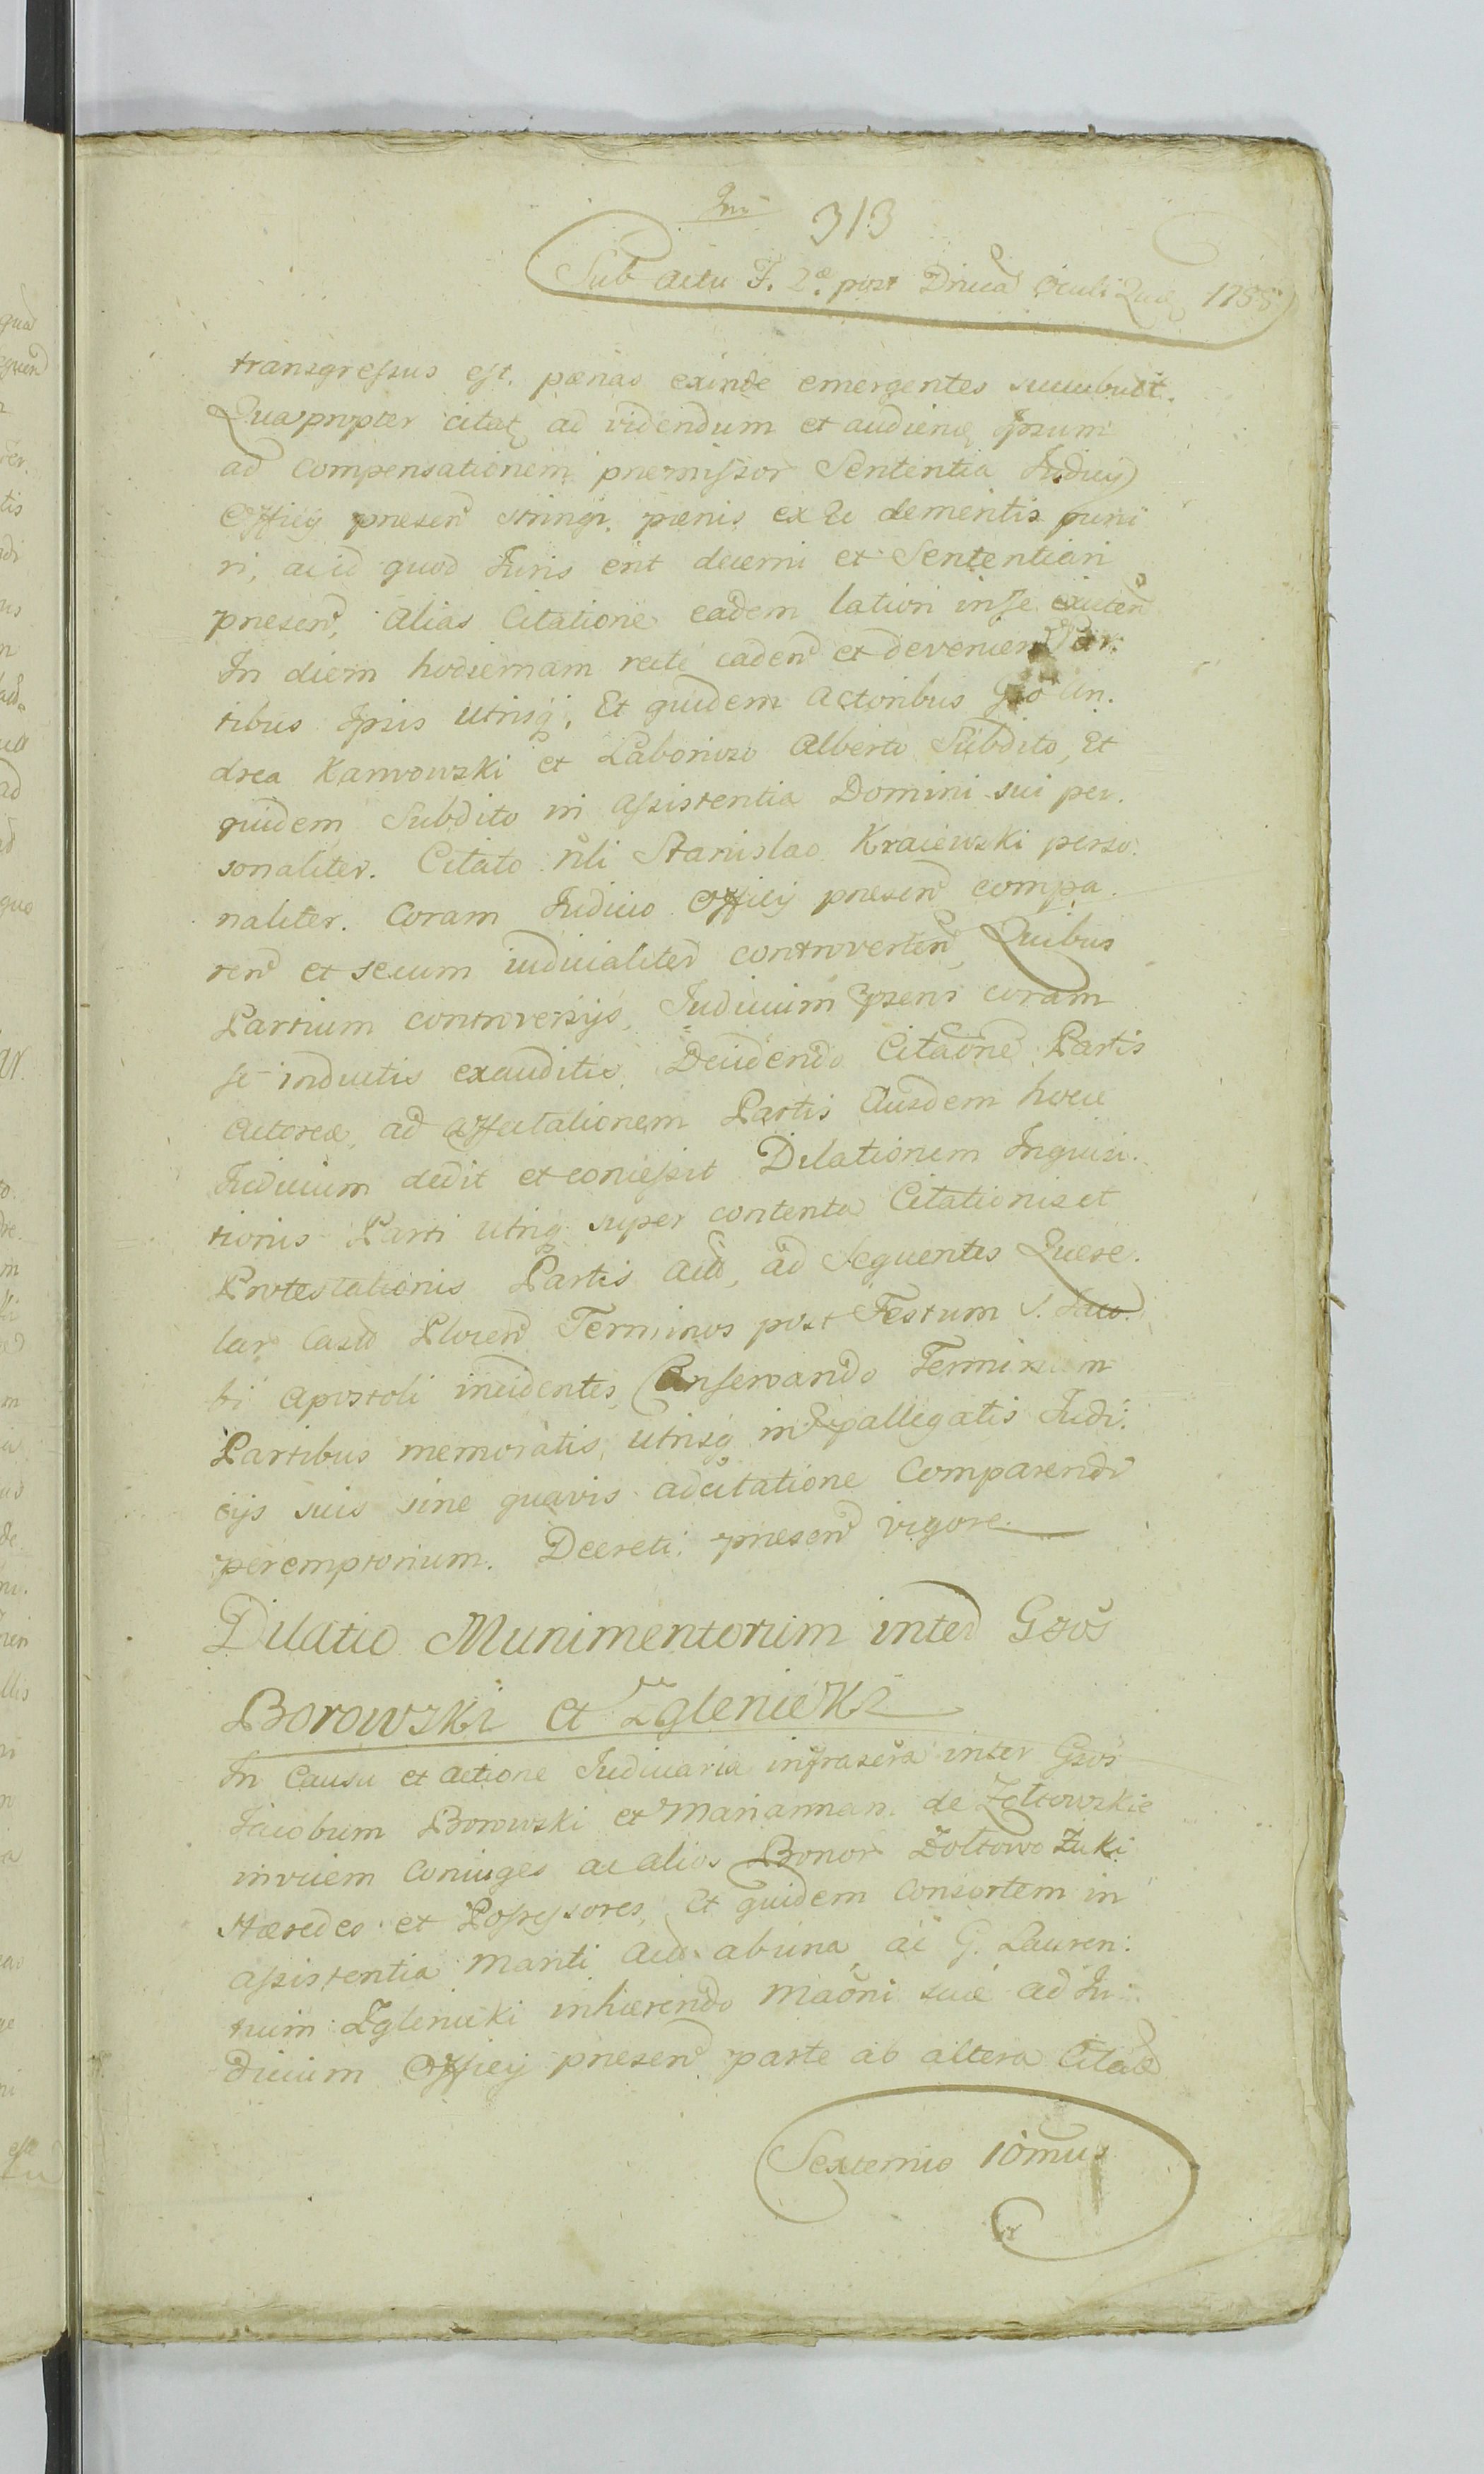 313
Sub Actu F. 2ª post Dnicã Oculi Quae 1788
transgressus est. pænas exinde emergentes succubuit.
Quapropter citat ad videndum et audiend Ipsum
ad compensationem præmissor Sententia Judicij
Officij præsen stringi, pænis ex demeritis puni
ri, ac id quod Juris erit decerni et Sententiari
præsen, Alias Citatione eadem latiori in se existen
In diem hodiernam recte caden et devenien Par:
tibus Ipsis Utrisq, Et quidem Actoribus Gso An.
drea Karwowski et Laborioso Alberto Subdito, Et
quidem Subdito in Assistentia Domini sui per.
sonaliter. Citato Nli Stanislao Kraiewski perso:
naliter. Coram Judicio Officij præsen compa.
ren et secum iudicialiter controverten, Quibus
Partium controversijs, Judicium præsens coram
se inductis exauditis, Decidendo Citaõne Partis
Actoreæ, ad affectationem Partis Eiusdem hocce
Judicium dedit et concessit Dilationem Inquisi.
tionis Parti utriq super contenta Citationis et
Protestationis Partis Act, ad Sequentes Quere.
lar Cast Plocen Terminos post Festum S. Jaco
bi Apostoli incidentes, Conservando Terminum
Partibus memoratis, utrisq in præallegatis Judi:
cijs suis sine quavis adcitatione Comparendi
peremptorium. Decreti præsen vigore.
Dilatio Munimentorum inter Gsos
Borowski et Zglenicki
In Causa et Actione Judiciaria infrascra inter Gsos
Jacobum Borowski et Mariannam de Zoltowskie
invicem Coniuges ac alios Bonor Zoltowo Zuki
Hæredes et Possessores, Et quidem Consortem in
assistentia Mariti Act ab una, ac G. Lauren:
tium Zglenicki inhærendo Maõni suæ ad Ju:
dicium Officij præsen parte ab altera Citat
Sexternio 10mus